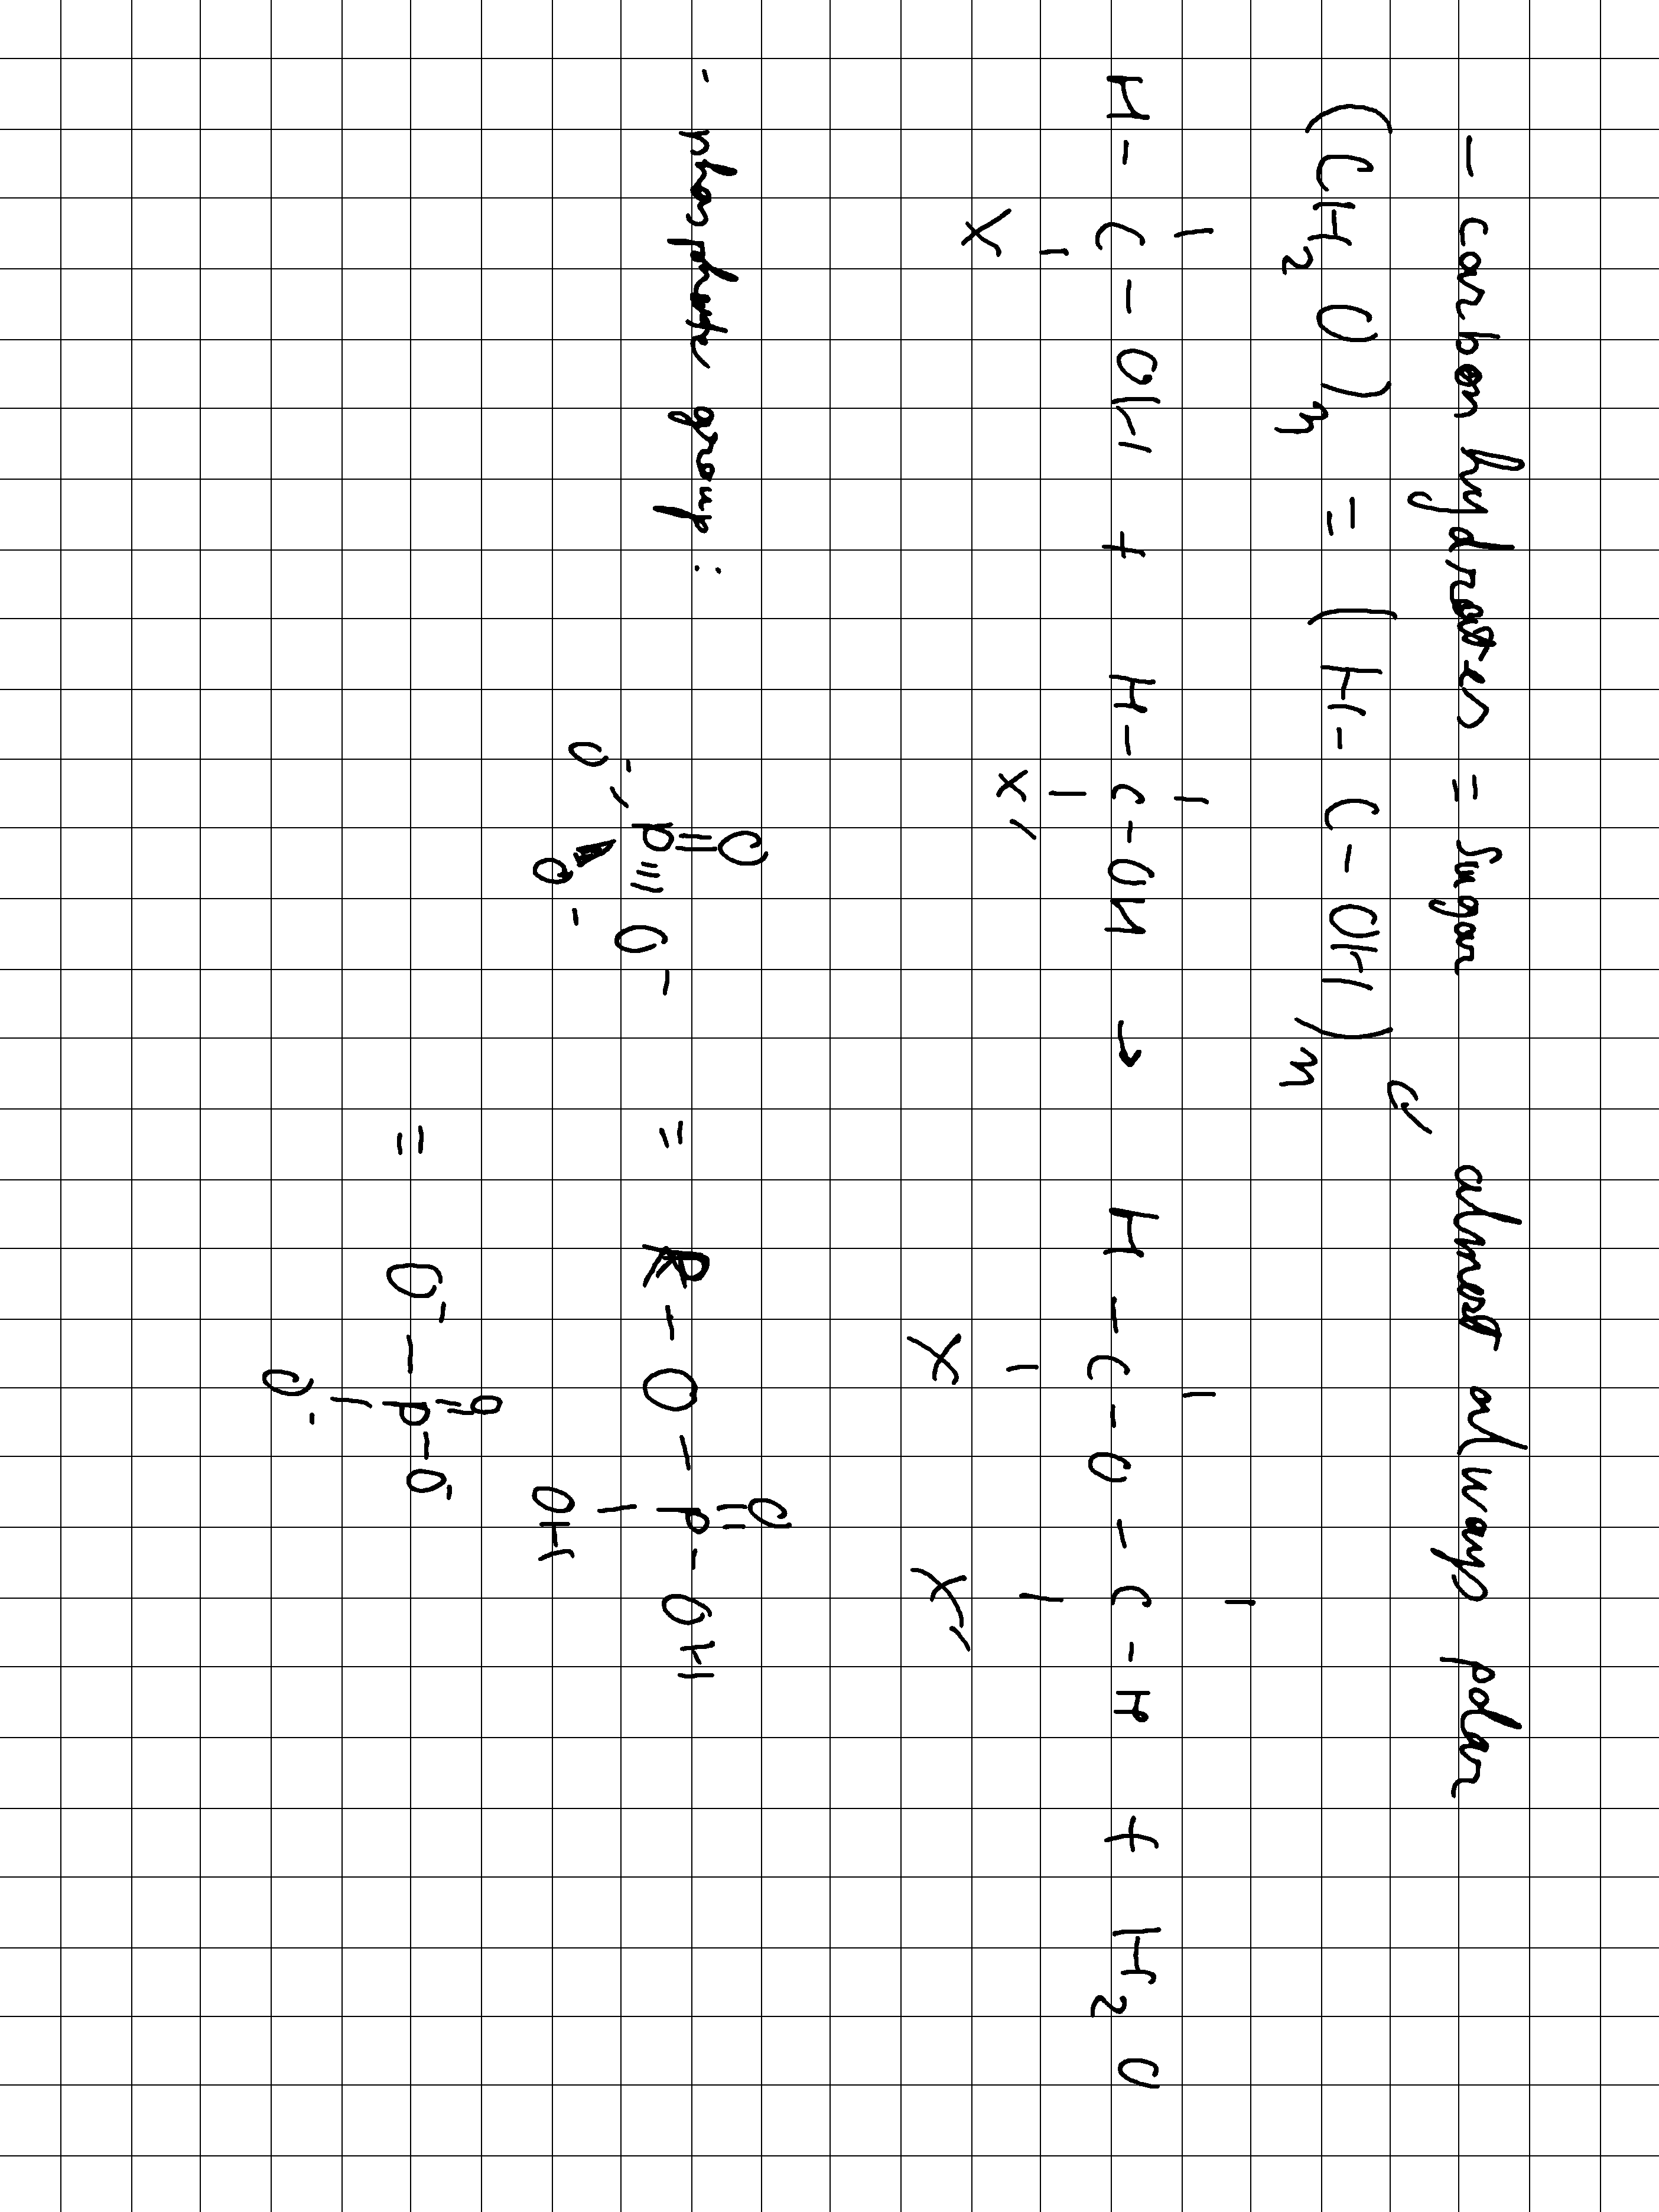 - carbon hydrates = Sugar almost always polar
(CH2O)n = (H-C-OH)n
H-C-OH + H-C-OH → H-C-O-C-H + H2O
X X' X X'
- phosphate group:
O
O- P O- = R-O-P-OH
O- OH
O
= O- - P - O-
O-